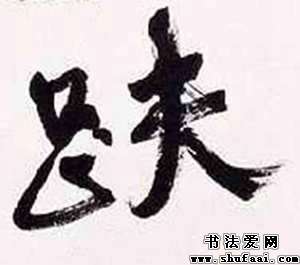 趺
书法爱网
www.shufaai.com